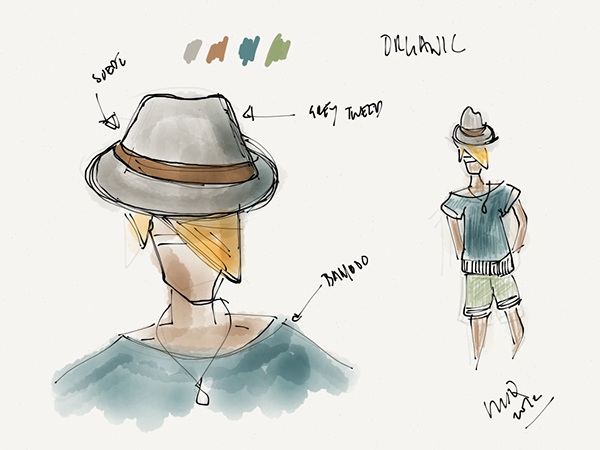 ORGANIC
SUEDE
GREY TWEED
BAMBOO
2012